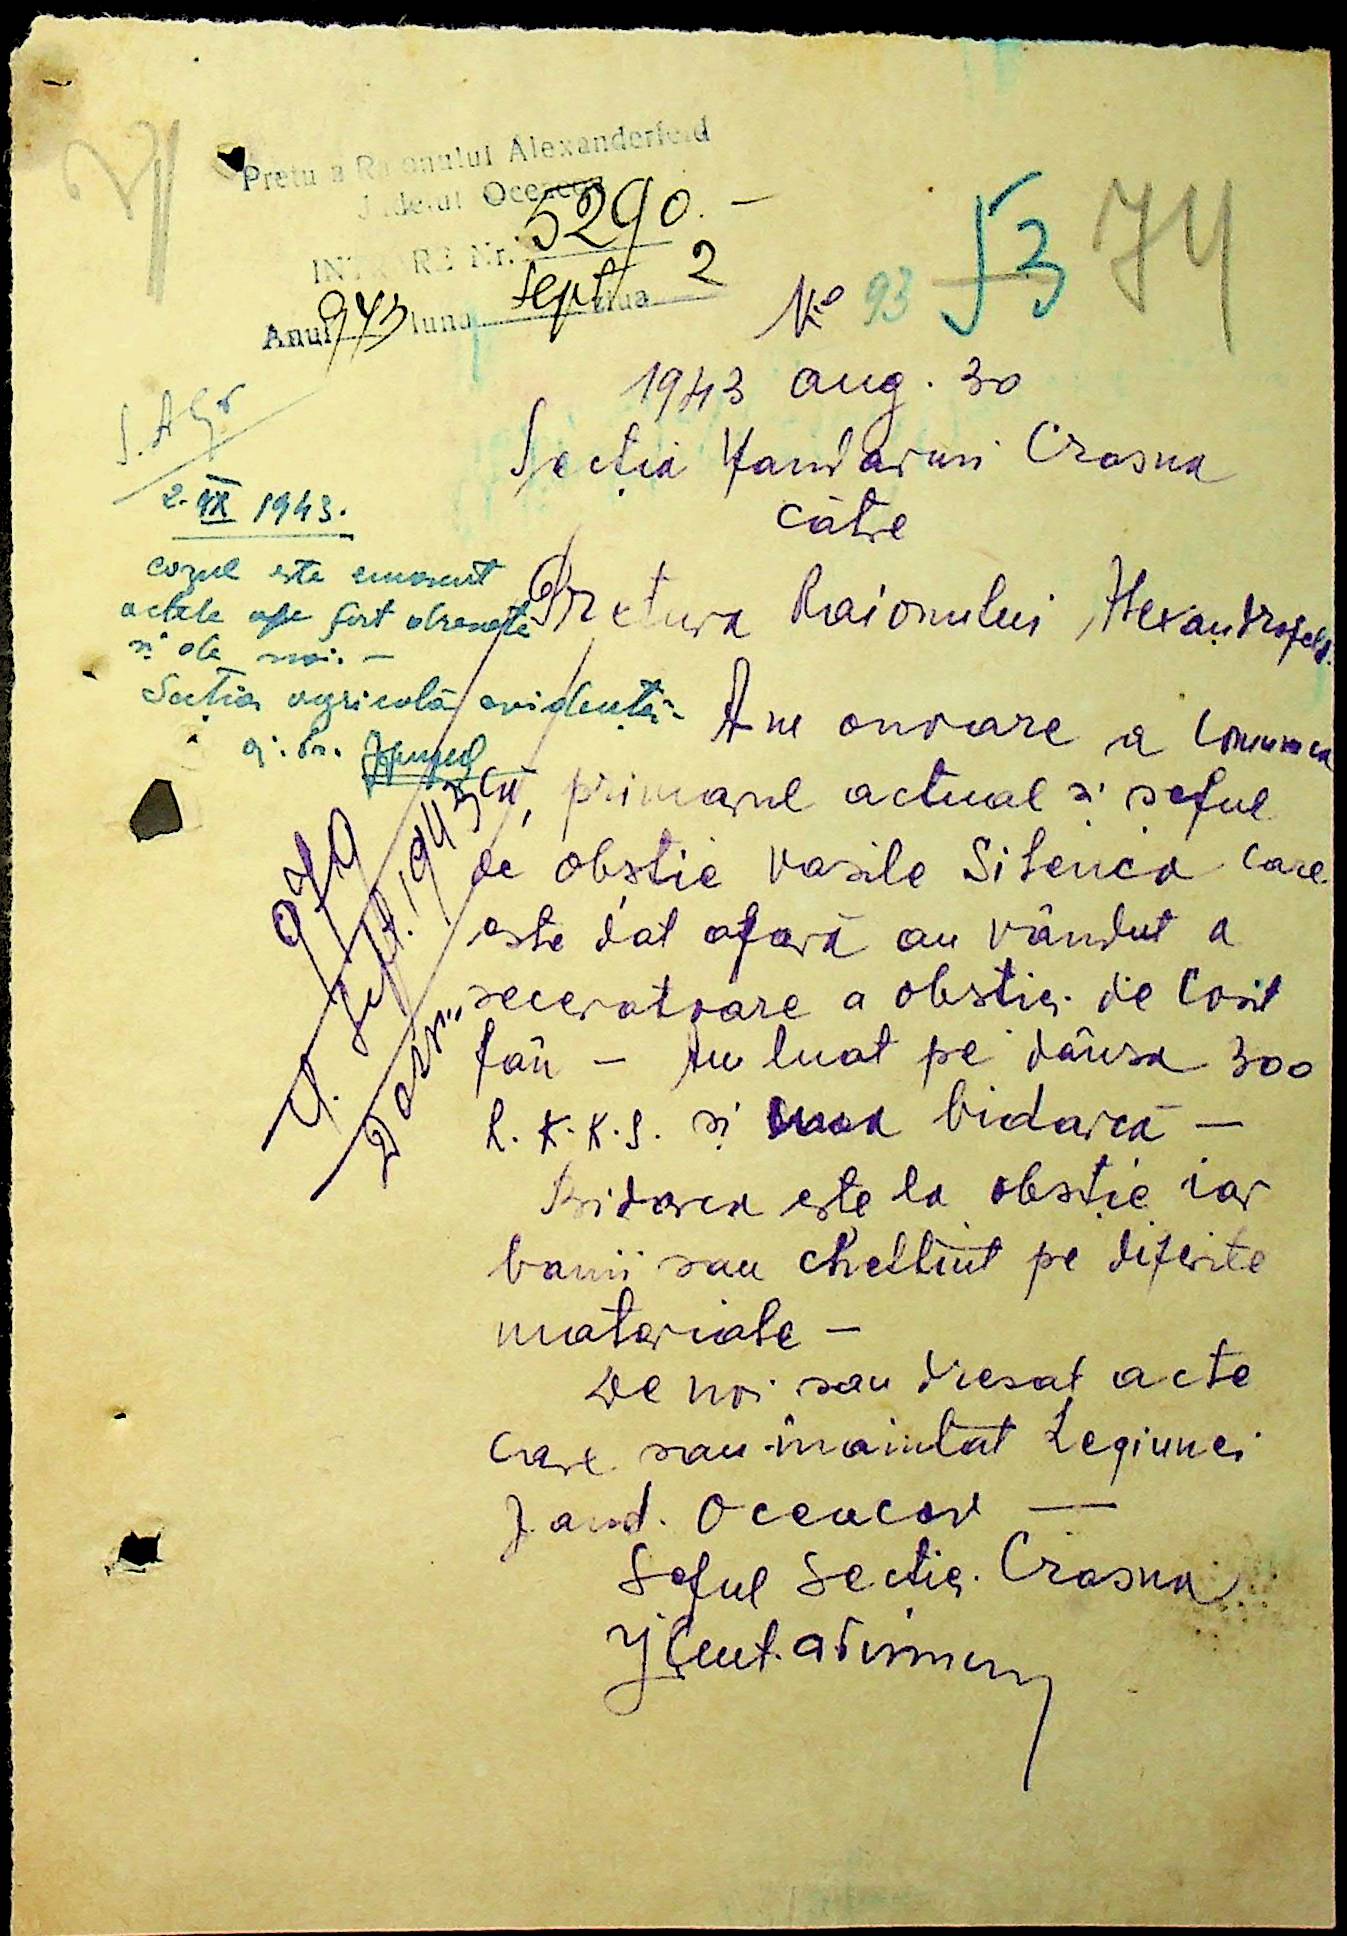 Pretura Raionului Alexanderfeld
Județul Oceacov
INTRARE Nr. 5290.—
Anul 943 luna sept ziua 2
53 74
No 93
1943 aug. 30
Secția Jandarmi Crasna
către
Pretura Raionului Alexandrofeld.
Am onoare a comunica
că, primarul actual și șeful
de obștie Vasile Silenco care
este dat afară au vândut a
seceratoare a obștiei de Cosit
fân — Au luat pe dânsa 300
R.K.K.S. și una bidarcă —
Bidarca este la obștie iar
banii sau cheltuit pe diferite
materiale —
De noi sau dresat acte
care sau înaintat Legiunei
Jand. Oceacov —
Șeful Secției Crasna
S. Agr
2. IX 1943.
cazul este cunoscut
actele au fost dresate
și de noi. —
Secția agricolă evidență
979
Sept. 1943
Dosar